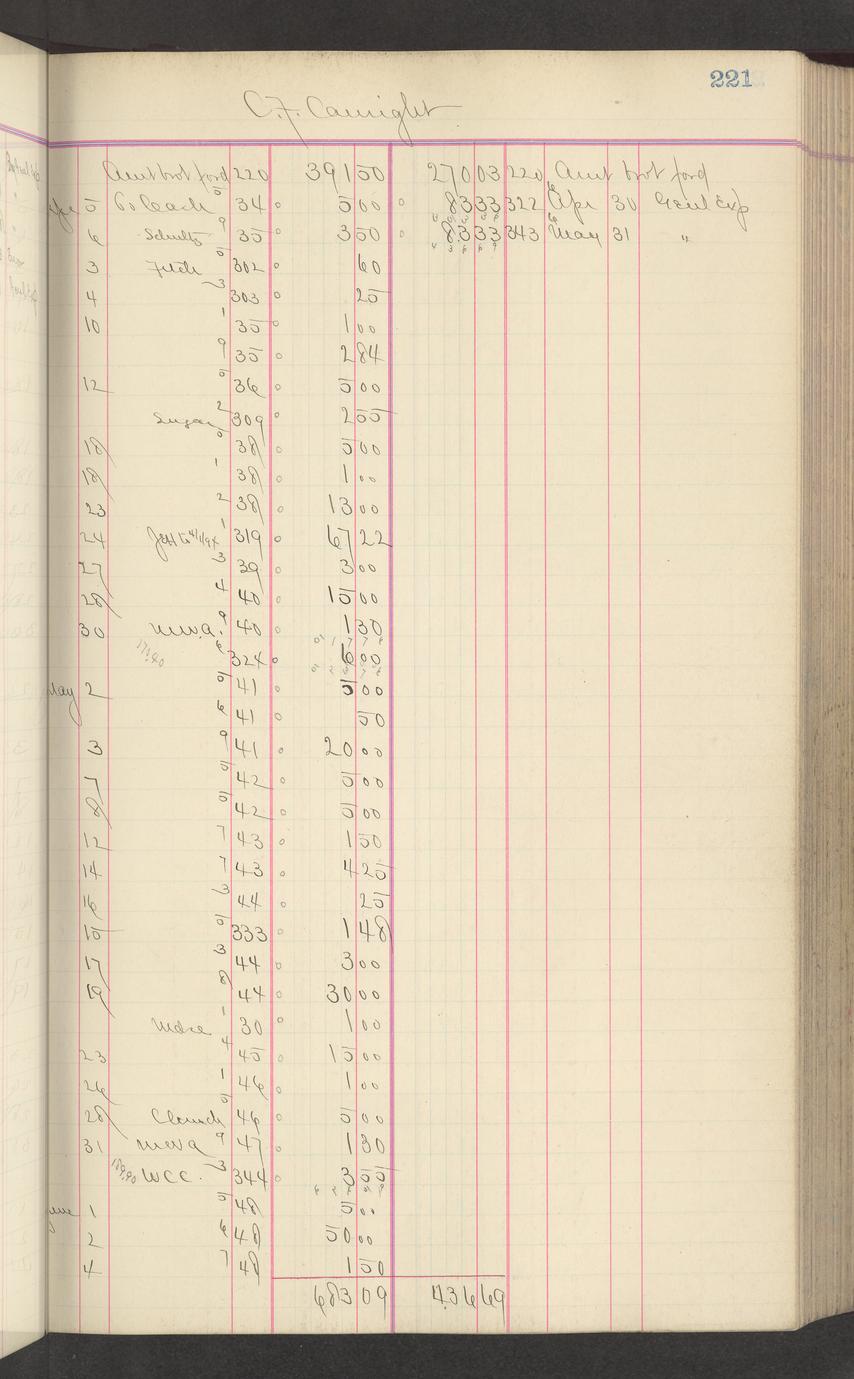 221
C. F. Carright
Amt brot ford 220 391 50 270 03 220 Amt brot ford
Apr 5 Co Cash 5 34 5 00 83 33 322 Apr 30 Genl Exp
6 Schultz 9 35 3 50 83 33 343 May 31 "
3 Fitch 5 302 60
4 3 303 25
10 1 35 1 00
9 35 2 84
12 5 36 5 00
Sugar 2 309 2 55
18 5 38 5 00
18 1 38 1 00
23 2 38 13 00
24 1 319 67 22
27 3 39 3 00
28 4 40 15 00
30 M.W.A. 9 40 1 30
171.40 6 324 6 00
May 2 5 41 5 00
6 41 50
3 9 41 20 00
7 5 42 5 00
8 5 42 5 00
12 7 43 1 50
14 7 43 4 25
16 3 44 25
15 5 333 1 48
17 3 44 3 00
19 8 44 30 00
Mdse 1 30 1 00
23 4 45 15 00
26 1 46 1 00
28 Church 5 46 5 00
31 MWA 9 47 1 30
W.C.C. 3 344 3 55
June 1 5 48 5 00
2 6 48 50 00
4 7 48 1 50
683 09 436 69